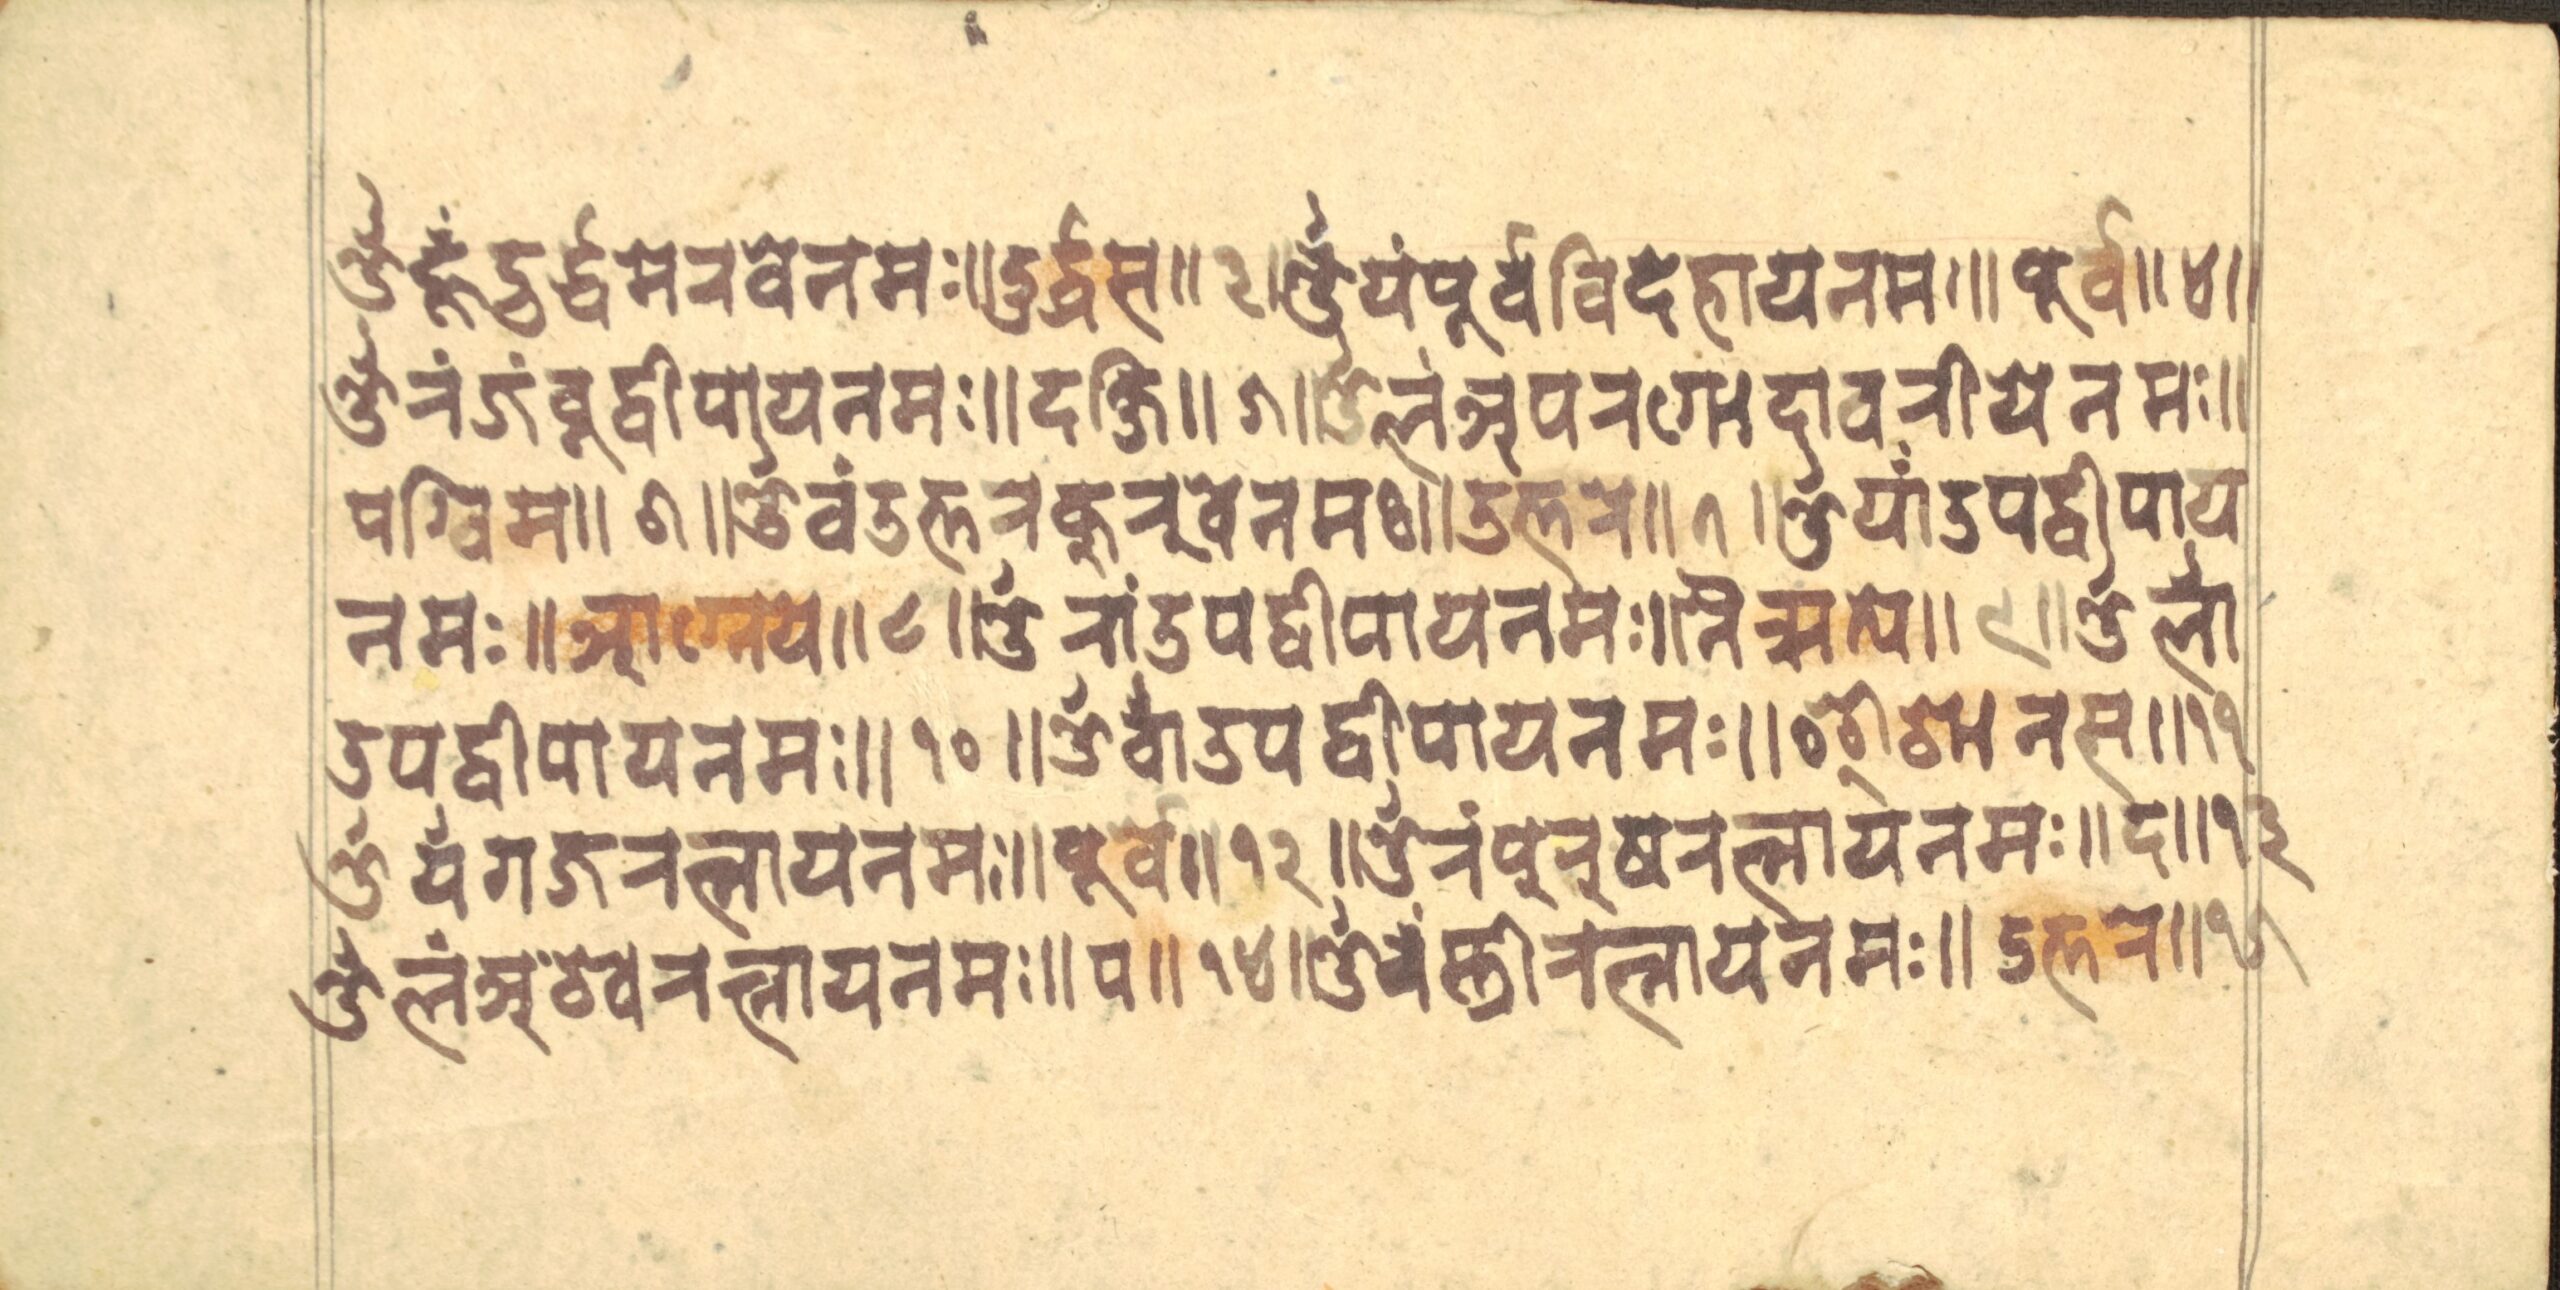 ॐ हूं उर्द्ध्वमेरवे नमः॥ उर्द्ध्वस॥ ३॥ ॐ यं पूर्वविदेहाय नमः॥ पूर्व॥ ४॥
ॐ रं जंबूद्वीपाय नमः॥ दक्षि॥ ५॥ ॐ लं अपरगोदावरीये नमः॥
पश्चिम॥ ६॥ ॐ वं उत्तरकुरुवे नमः॥ उत्तरे॥ ७॥ ॐ यां उपद्वीपाय
नमः॥ आग्नेय॥ ८॥ ॐ रां उपद्वीपाय नमः॥ नैऋत्ये॥ ९॥ ॐ लां
उपद्वीपाय नमः॥ १०॥ ॐ वां उपद्वीपाय नमः॥ नस॥ ११
ॐ यं गजरत्नाय नमः॥ पूर्व॥ १२॥ ॐ रं पुरुषरत्नाय नमः॥ द॥ १३
ॐ लं अश्वरत्नाय नमः॥ प॥ १४॥ ॐ वं स्त्रीरत्नाय नमः॥ उत्तरे॥ १५